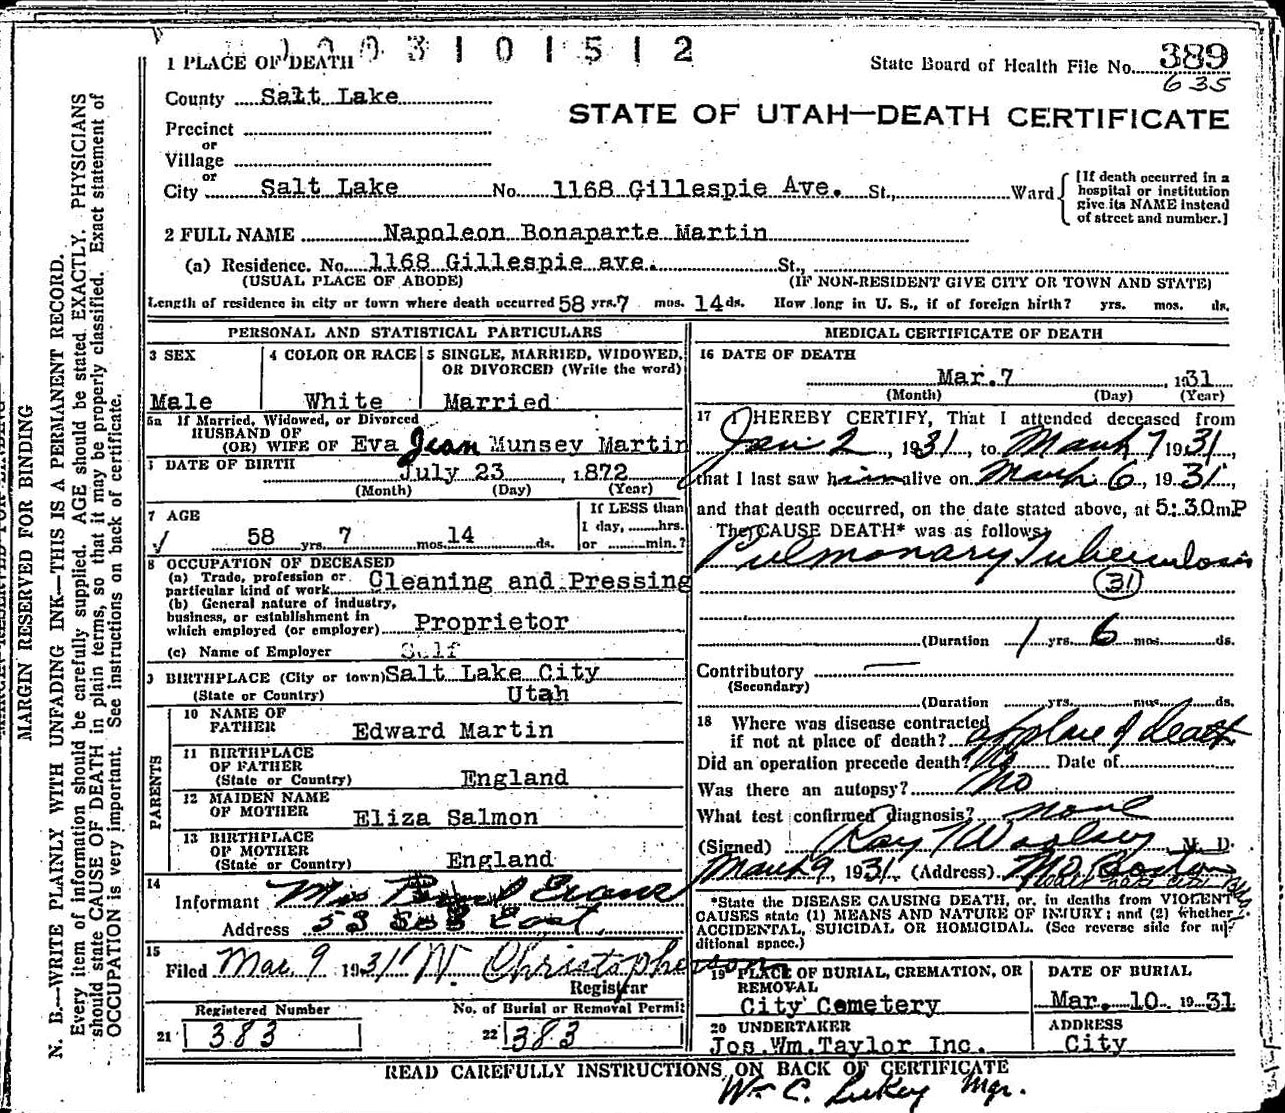 1003101512
1 PLACE OF DEATH
State Board of Health File No. 389
635
County Salt Lake
STATE OF UTAH—DEATH CERTIFICATE
Precinct
or
Village
or
City Salt Lake No. 1168 Gillespie Ave. St., Ward
[If death occurred in a
hospital or institution
give its NAME instead
of street and number.]
2 FULL NAME Napoleon Bonaparte Martin
(a) Residence. No. 1168 Gillespie ave. St.,
(USUAL PLACE OF ABODE) (IF NON-RESIDENT GIVE CITY OR TOWN AND STATE)
Length of residence in city or town where death occurred 58 yrs. 7 mos. 14 ds. How long in U. S., if of foreign birth? yrs. mos. ds.
PERSONAL AND STATISTICAL PARTICULARS
3 SEX
Male
4 COLOR OR RACE
White
5 SINGLE, MARRIED, WIDOWED,
OR DIVORCED (Write the word)
Married
5a If Married, Widowed, or Divorced
HUSBAND OF
(OR) WIFE OF Eva Jean Munsey Martin
DATE OF BIRTH
July 23, 1872
(Month) (Day) (Year)
7 AGE
58 yrs. 7 mos. 14 ds.
If LESS than
1 day, hrs.
or min.?
8 OCCUPATION OF DECEASED
(a) Trade, profession or
particular kind of work Cleaning and Pressing
(b) General nature of industry,
business, or establishment in
which employed (or employer) Proprietor
(c) Name of Employer Self
9 BIRTHPLACE (City or town) Salt Lake City
(State or Country) Utah
PARENTS
10 NAME OF
FATHER Edward Martin
11 BIRTHPLACE
OF FATHER
(State or Country) England
12 MAIDEN NAME
OF MOTHER Eliza Salmon
13 BIRTHPLACE
OF MOTHER
(State or Country) England
14
Informant Mrs Evans
Address 53 East
15
Filed Mar 9 1931 W. Christopherson
Registrar
Registered Number
21 383
No. of Burial or Removal Permit
22 383
MEDICAL CERTIFICATE OF DEATH
16 DATE OF DEATH
Mar. 7, 1931
(Month) (Day) (Year)
17 I HEREBY CERTIFY, That I attended deceased from
Jan 2, 1931, to March 7 1931,
that I last saw him alive on March 6, 1931,
and that death occurred, on the date stated above, at 5:30 m P
The CAUSE DEATH* was as follows
Pulmonary Tuberculosis
31
(Duration 1 yrs. 6 mos. ds.
Contributory
(Secondary)
(Duration yrs. mos. ds.
18 Where was disease contracted
if not at place of death? at place of death
Did an operation precede death? No Date of
Was there an autopsy? No
What test confirmed diagnosis? none
(Signed) Ray T Woolsey M. D.
March 9, 1931. (Address)
*State the DISEASE CAUSING DEATH, or, in deaths from VIOLENT
CAUSES state (1) MEANS AND NATURE OF INJURY; and (2) whether
ACCIDENTAL, SUICIDAL OR HOMICIDAL. (See reverse side for ad-
ditional space.)
19 PLACE OF BURIAL, CREMATION, OR
REMOVAL
City Cemetery
DATE OF BURIAL
Mar. 10 1931
20 UNDERTAKER
Jos. Wm. Taylor Inc.
ADDRESS
City
READ CAREFULLY INSTRUCTIONS ON BACK OF CERTIFICATE
Wm C. Lukey Mgr.
MARGIN RESERVED FOR BINDING
N. B.—WRITE PLAINLY WITH UNFADING INK—THIS IS A PERMANENT RECORD.
Every item of information should be carefully supplied. AGE should be stated EXACTLY. PHYSICIANS
should state CAUSE OF DEATH in plain terms, so that it may be properly classified. Exact statement of
OCCUPATION is very important. See instructions on back of certificate.